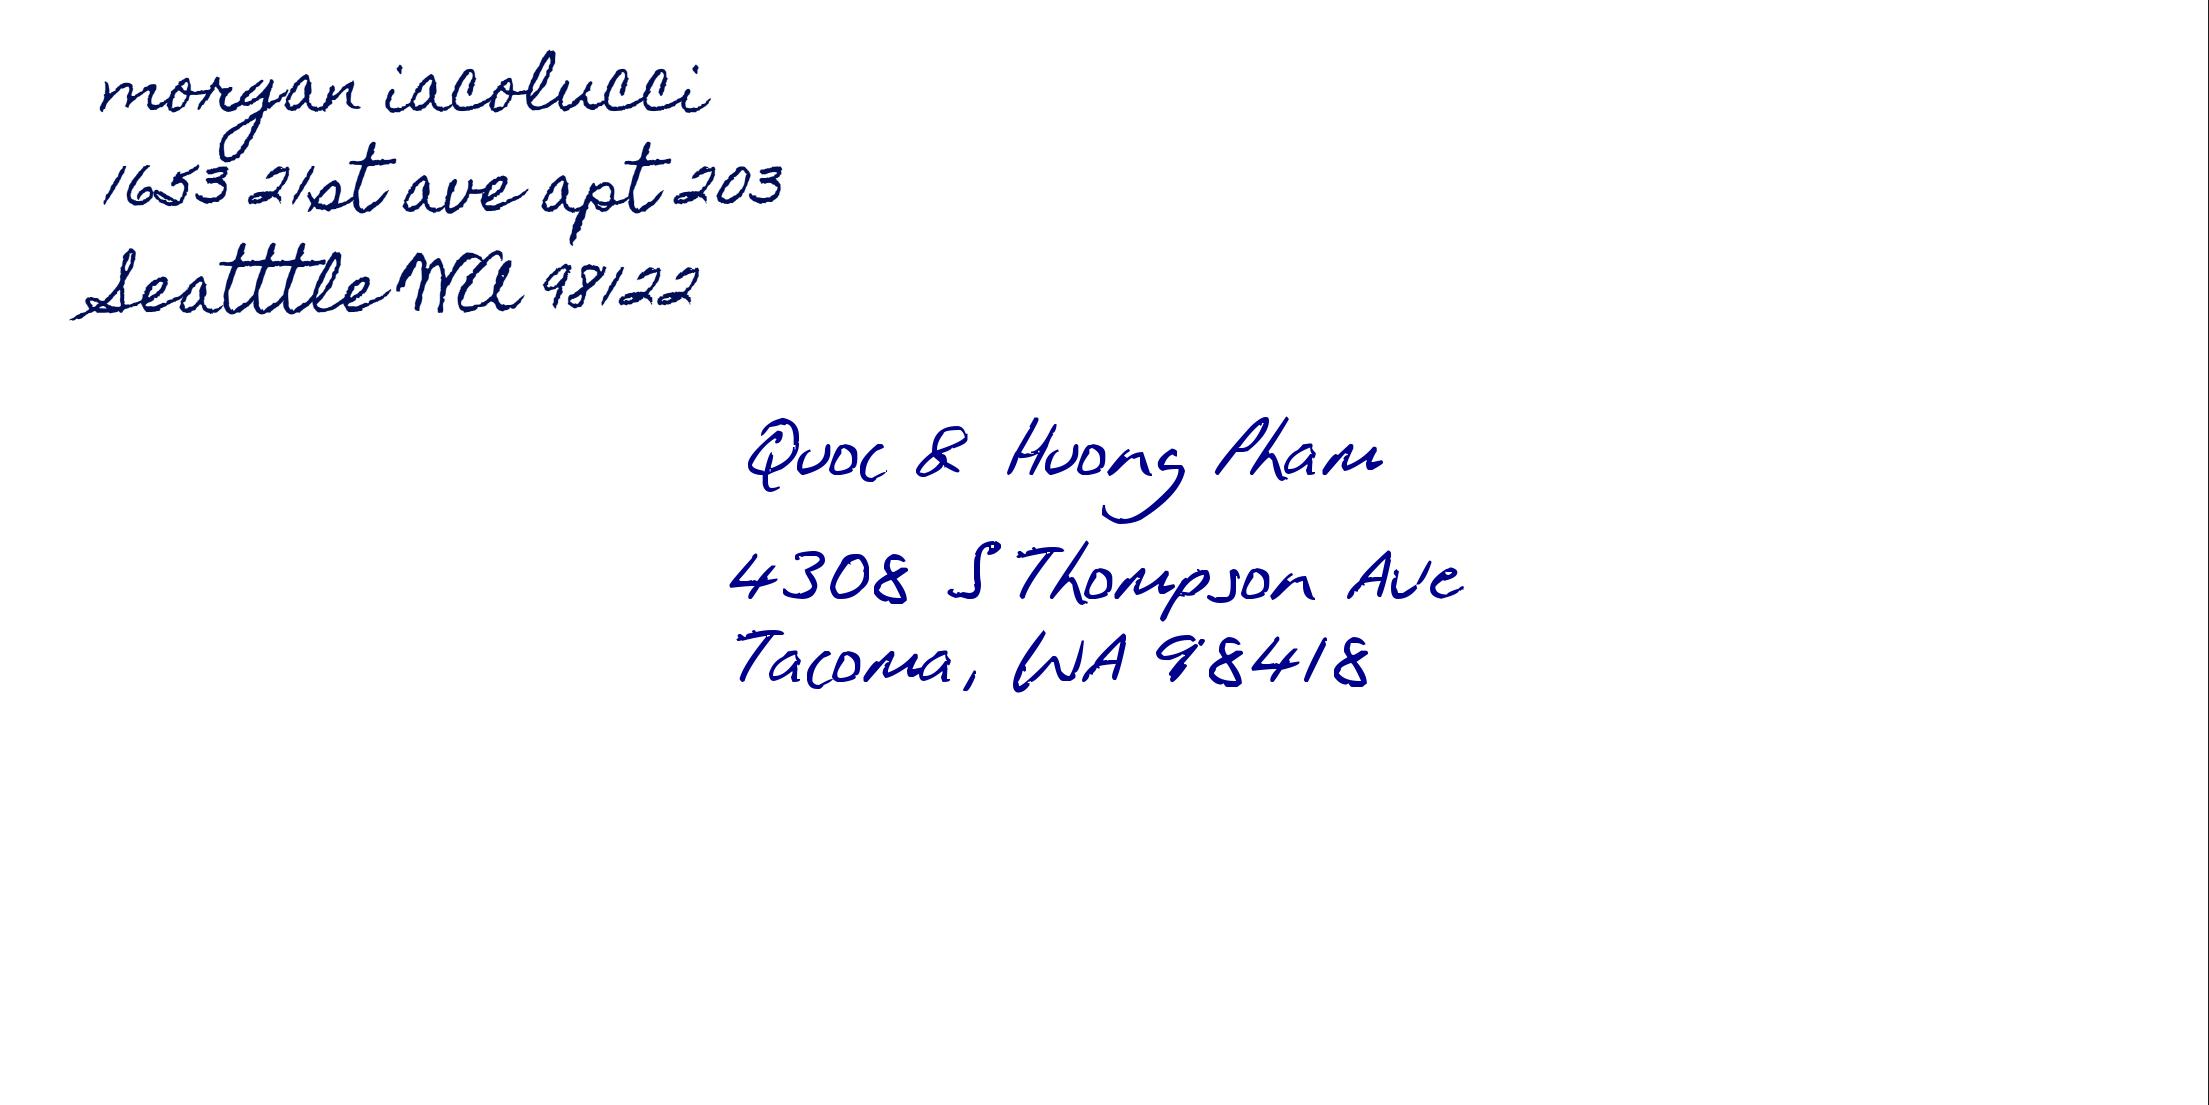 morgan iacolucci
1653 21st ave apt 203
Seatttle WA 98122
Quoc & Huong Pham
4308 S Thompson Ave
Tacoma, WA 98418